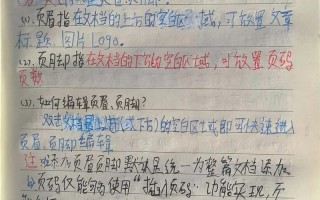 (1).页眉指在文档的上方的空白区域,可放置文章
标题、图片Logo。
(2).页脚指在文档的下方的空白区域,可放置页码
页数
(3).如何编辑页眉、页脚?
双击文档上方(或下方)的空白区域,即可快速进入
页眉、页脚编辑
注 页眉页脚默认是统一为整篇文档添加
页码仅能够使用“插入页码”功能实现,不